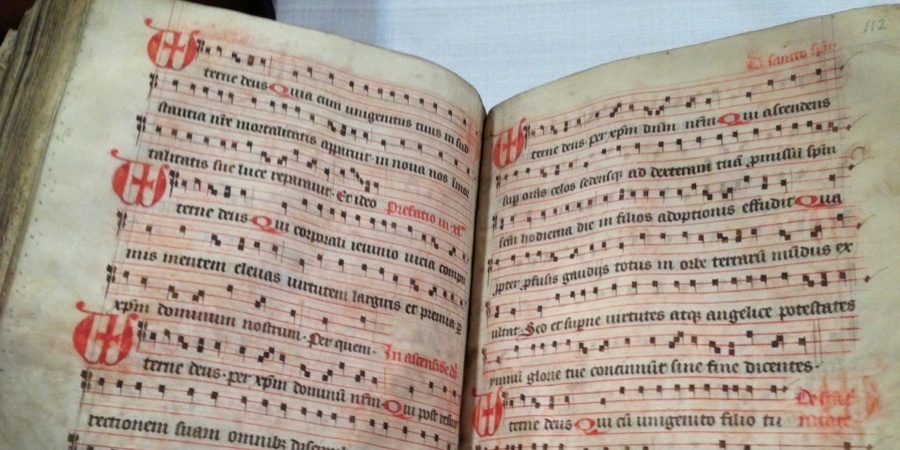 terne deus Quia cum unigenitus tuus in sub
stantia nře mortalitatis apparuit in noua nos īmor
talitatis sue luce reparauit· Et ideo Prefatio in xl
terne deus Qui corporali ieiunio uicia compri
mis mentem eleuas uirtutem largiris et premia p
xpm dominum nostrum· Per quem· In ascensiōe dñi
terne deus· per xpm dominū nrm Qui post resur
rectionem suam omnibꝫ
112
De sancto spiritu
terne deus per xpm dnm nrm Qui ascendens
sup om̄s celos sedensqꝫ ad dexteram tuā ꝓmissū spm
scm̄ hodierna die in filios adoptionis effudit Qua
ꝓpter ꝓfusis gaudijs totus in orbe terrarū mūdus ex
ultat· Sed et supne uirtutes atqꝫ angelice potestates
ymnū glorie tue concinnūt sine fine dicentes·
terne deus Qui cū unigenito filio tu